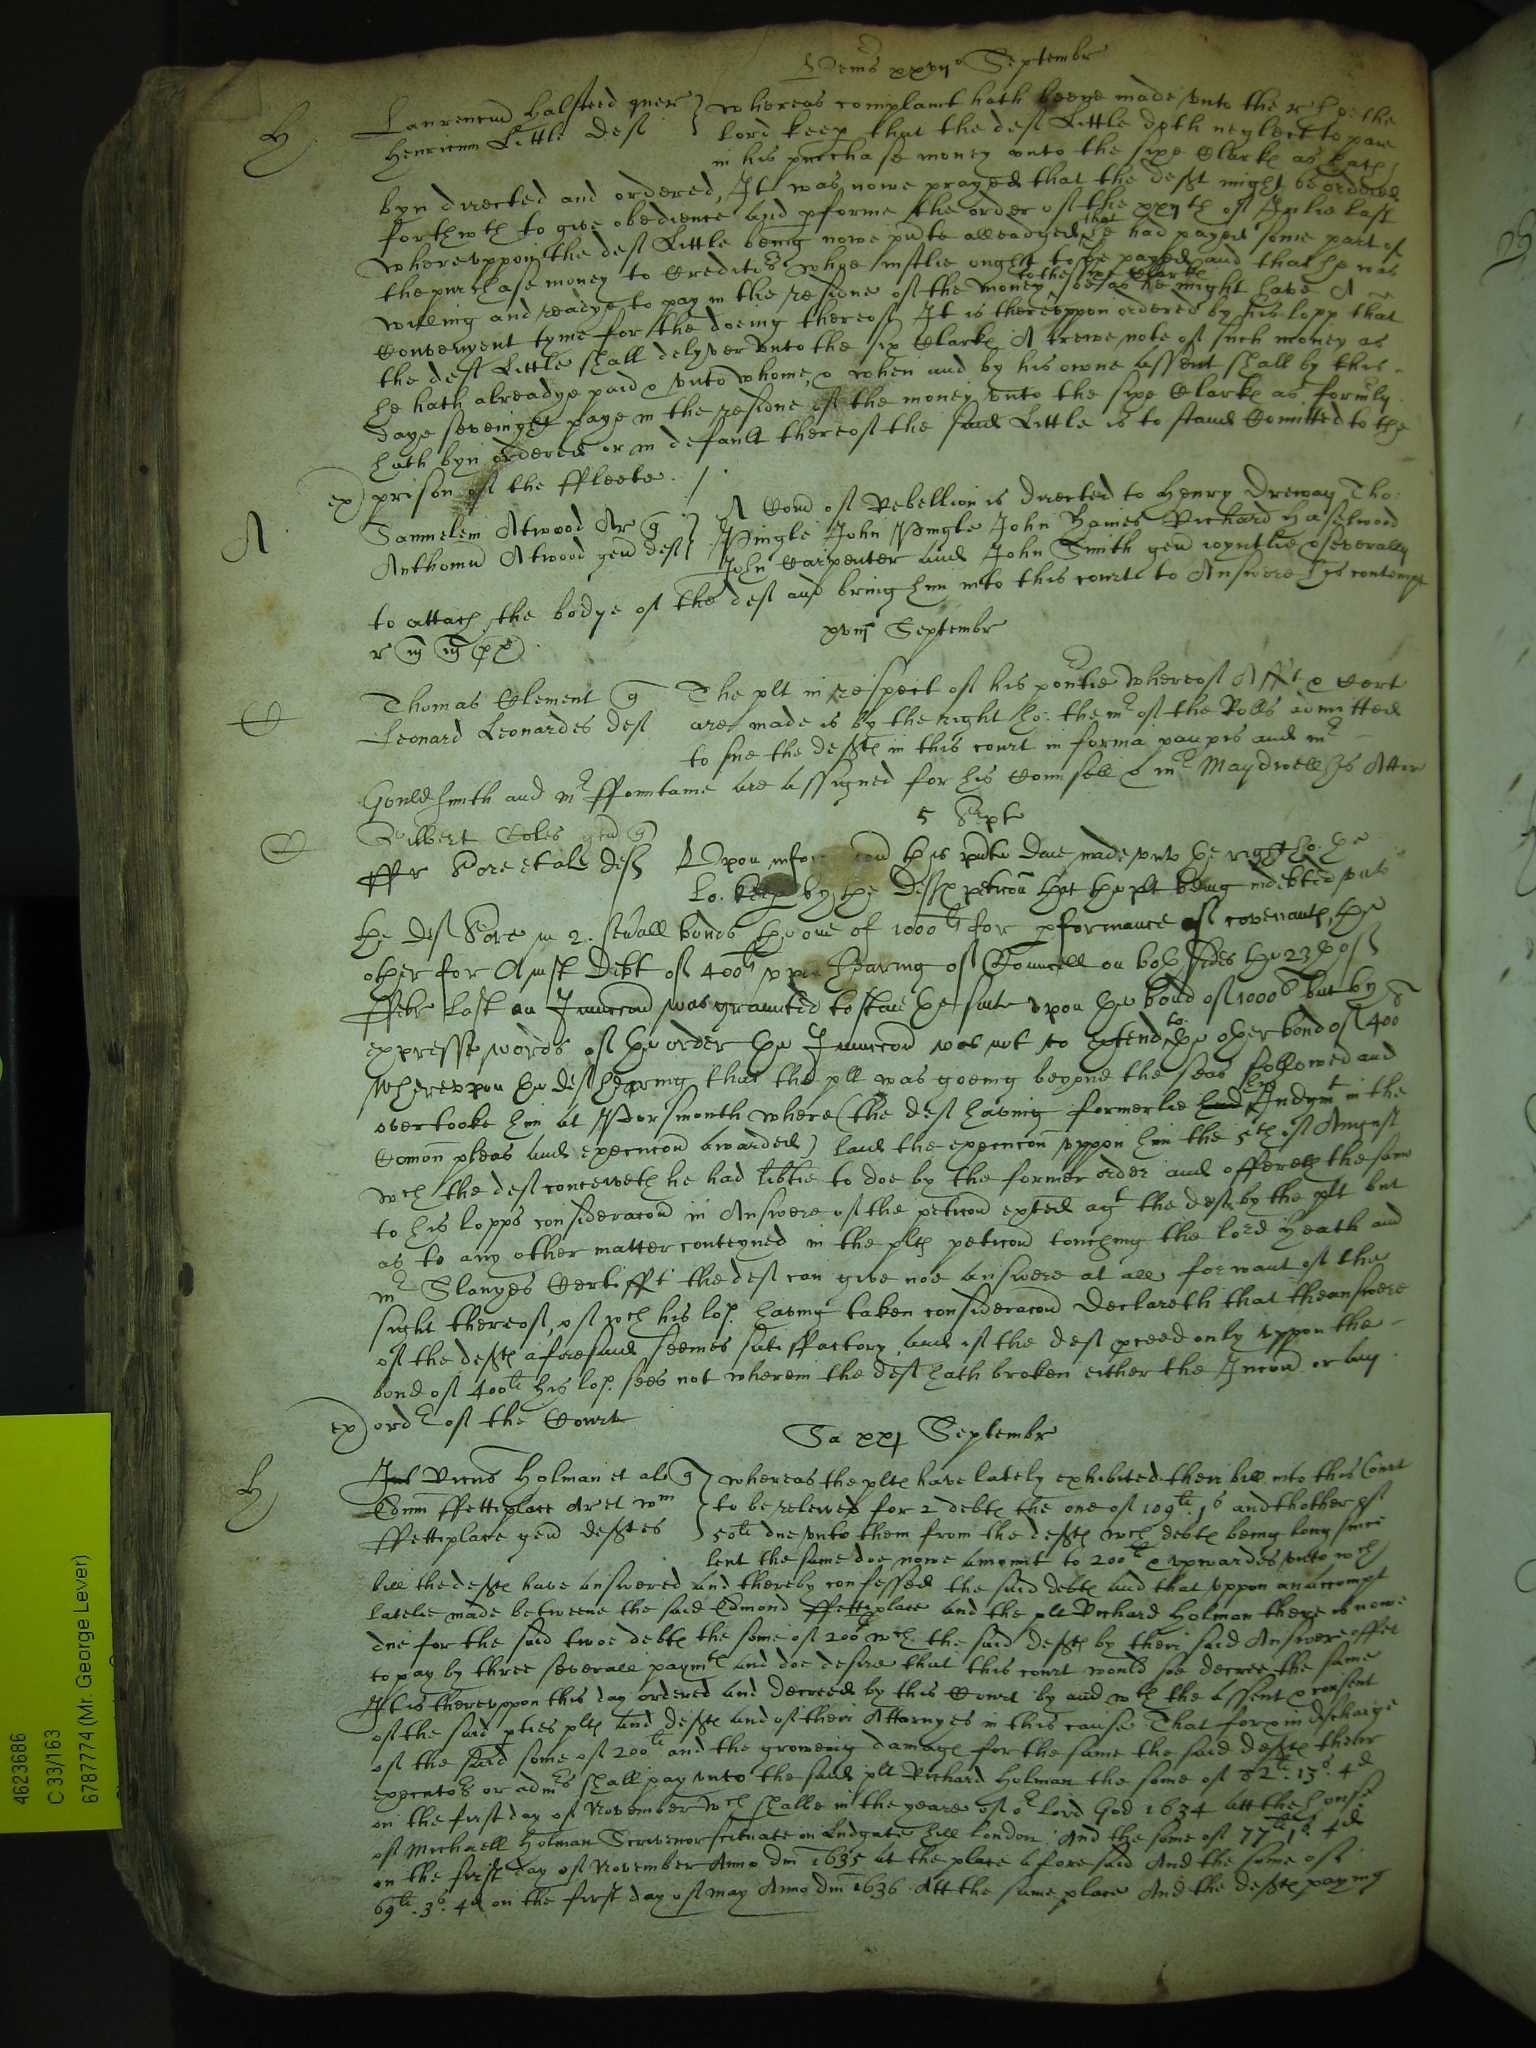 Veneris xxvij° Septembr
H
Laurencium Halsteed quer
Henricum Little Deft
whereas complaint hath beene made unto the r ho: the
lord keep that the deft Little doth neglect to paie
in his purchase money unto the sixe Clarke as hath
byn directed and ordered, It was nowe prayed that the deft might be ordered
forthwth to give obedience and pforme the order of the xxijth of Julie last
whereuppon the deft Little being nowe alleadged that he had payed some part of
the purchase money to Creditors whoe justlie ought to be payed and that he was
willing and readye to pay in the residue of the money to the six Clarke soe as he might have A
Convenyent tyme for the doeing thereof It is thereuppon ordered by his lopp that
the deft Little shall delyver unto the six Clarke A trewe note of such money as
he hath alreadye paid & unto whome, & when and by his owne assent shall by this
daye sevenight paye in the residue of the money unto the sixe Clarke as formly
hath byn ordered or in default thereof the said Little is to stand Comitted to the
ex) prison of the ffleete . /.
A
Samuelem Atwood Ar q
Anthoniu Atwood gen deft
A Com of Rebellion is directed to Henry Dreway Tho:
Pingle John Pingle John Haines Richard Haselwood
John Carpenter and John Smith gen joyntlie & severally
to attach the bodye of the deft and bring him into this courte to Answere his contempt
xviij Septembr
C
Thomas Clement q
Leonard Leonardes deft
The plt in respect of his povtie whereof Afft & Cert
are made is by the right ho: the mr of the Rolls admitted
to sue the defte in this court in forma paupis and mr
Gouldsmith and mr ffountaine are assigned for his Counsell & mr Maydwell his Attor
5 Sept
C
Gilbert Coles gen q
ffr Sore et al deft
Upon this made unto the right ho. the
Lo. keep by the deft peticon that the plt being indebted unto
the deft Sore in 2. sevall bonds the one of 1000li for pformance of covenante, the
other for A just Debt of 400li upon hearing of Councell on both sides the 23th of
ffebr last an Juncon was graunted to staie the suite upon the bond of 1000li but by
expresse words of the order the Juncon was not to extend to the other bond of 400
whereupon the deft hearing that the plt was goeing beyond the seas followed and
overtooke him at Portsmouth where (the deft having formerlie had Judgmt in the
Comon pleas and execucon awarded) laid the execucon uppon him the 5th of August
wch the deft conceiveth he had libtie to doe by the former order and offereth the same
to his lopps consideracon in Answere of the peticon exhted agt the deft by the plt but
as to any other matter conteyned in the plte peticon touching the lord Heath and
mr Slanyes Certifft the deft can give noe answere at all for want of the
sight thereof, of wch his lop. having taken consideracon Declareth that the answere
of the defte aforesaid seemes satisfactory and if the deft pceed only uppon the
bond of 400li his lop. sees not wherein the deft hath broken either the Jncon or any
ex) ordr of the Court
Sa xxj Septembr
H
Ricus Holman et al q
Edmu ffettiplace Ar et Wm
ffettiplace gen deftes
whereas the plte have lately exhibited their bill into this Court
to be releived for 2 debte the one of 109li. 1s and thother of
50li due unto them from the defte wch debte being long since
lent the same doe nowe amount to 200li & upwardes unto wch
bill the defte have answered and thereby confessed the said debte and that uppon an accompt
latelie made betweene the said Edmond ffettiplace and the plt Richard Holman there is nowe
due for the said twoe debte the some of 200li wch the said defte by their said Answere offer
to pay by three severall paymte and doe desire that this court would soe decree the same
It is thereuppon this day ordered and decreed by this Court by and wth the assent & consent
of the said pties plte and defte and of their Attornyes in this cause That for & in discharge
of the said some of 200li and the groweing damage for the same the said defte their
executors or admrs shall pay unto the said plt Richard Holman the some of 82li. 13s. 4d
on the first day of November wch shalbe in the yeare of or lord God 1634 att the house
of Michaell Holman Scrivenor scituate on Ludgate hill london. And the some of 77li 1s 4d
on the first day of November Anno Dni 1635 at the place aforesaid And the some of
69li. 3s. 4d on the first day of may Anno Dni 1636 Att the same place And the defte paying
4623686
C 33/163
6787774 (Mr. George Lever)